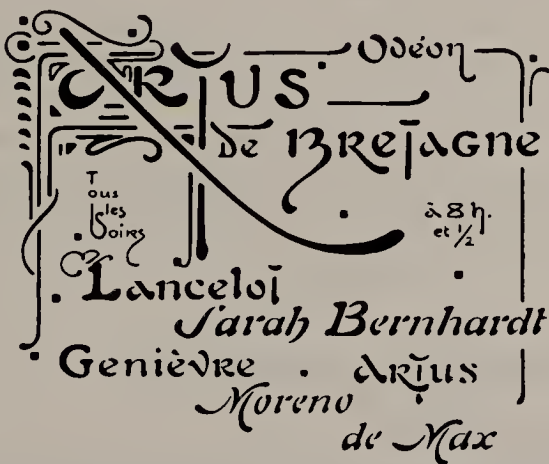 Odéon
ARTUS
de BRETAGNE
Tous
les
Soirs
à 8 h.
et 1/2
Lancelot
Sarah Bernhardt
Genièvre . ARTUS
Moreno
de Max